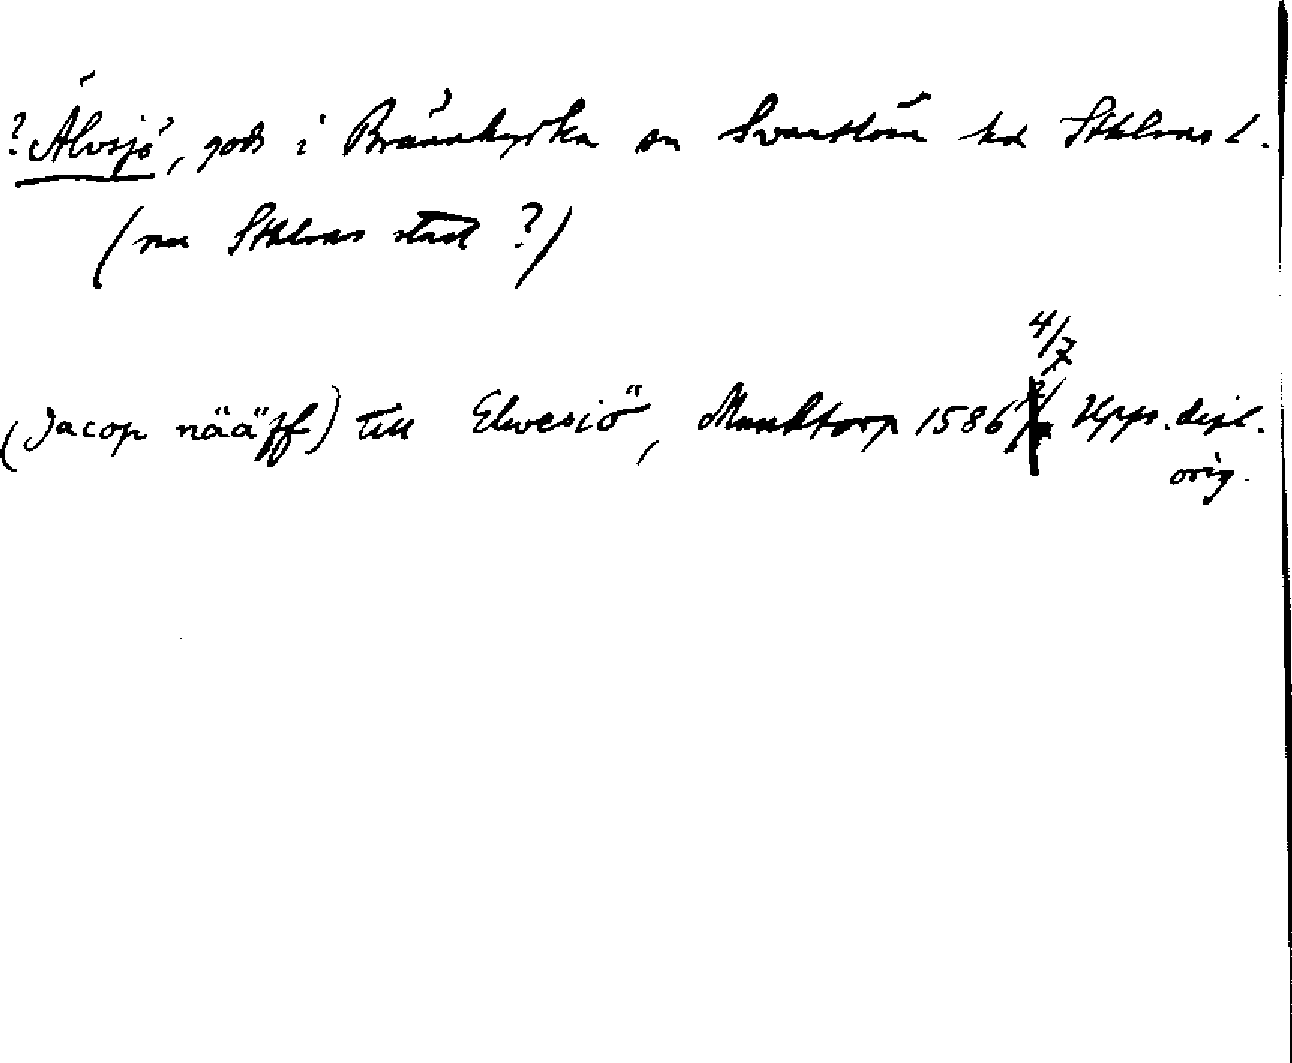 ? Älvsjö, gods i Brännkyrka sn Svartlösa hd Sthlms l.
(nu Sthlms stad ?)
4/7
(Jacop nääff) till Elwesiö, Munktorp 1586 Upps. dipl.
orig.